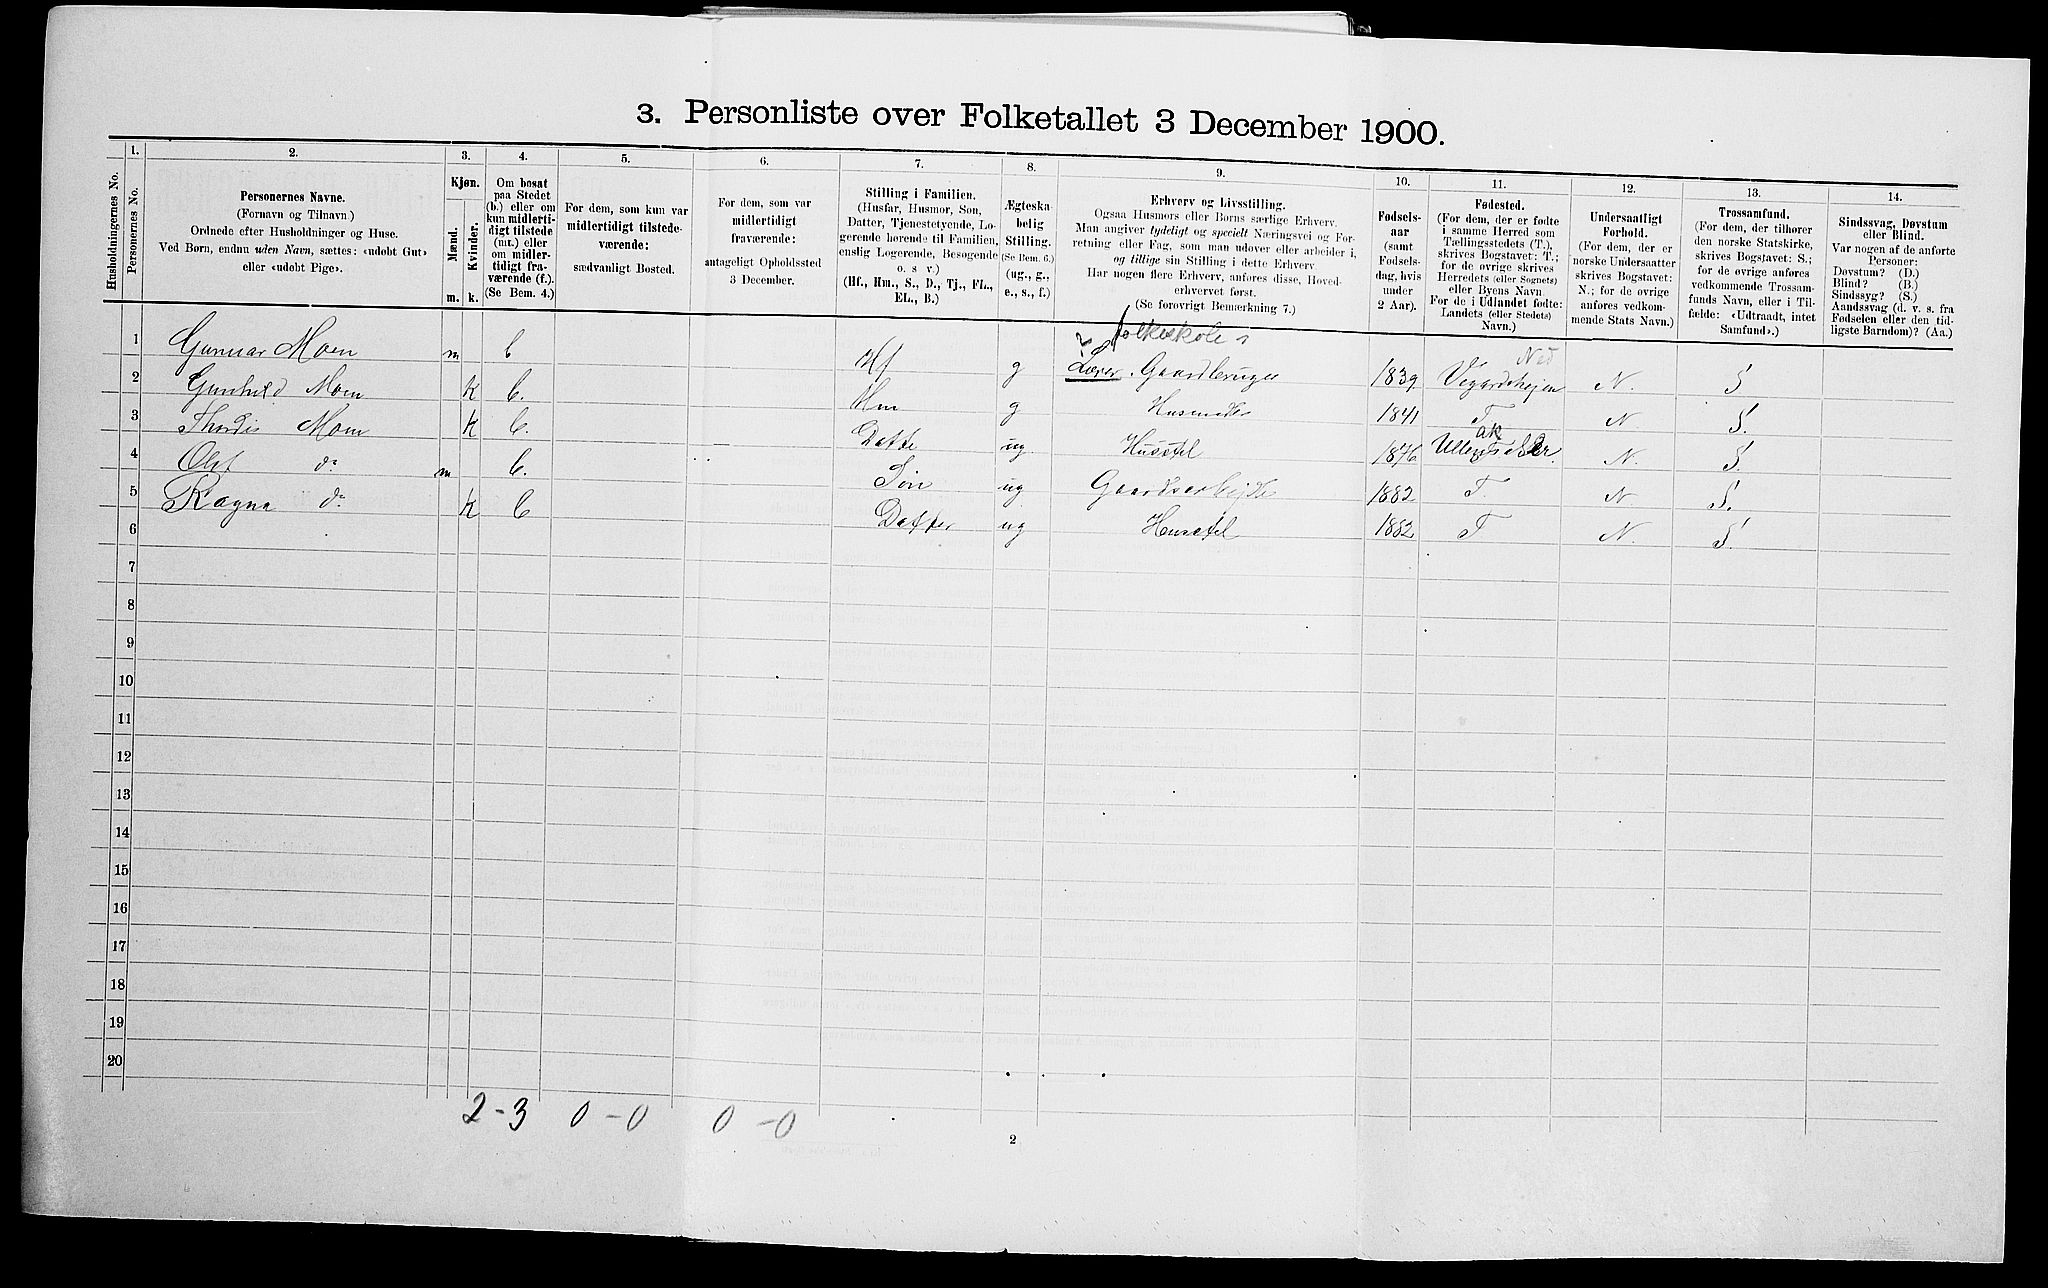 3. Personliste over Folketallet 3 December 1900.
Husholdningernes No.
1.
Personernes No.
2.
Personernes Navne.
(Fornavn og Tilnavn.)
Ordnede efter Husholdninger og Huse.
Ved Børn, endnu uden Navn, sættes: «udobt Gut»
eller «udobt Pige».
3.
Kjøn.
Mænd.
Kvinder.
m.
k.
4.
Om bosat
paa Stedet
(b.) eller om
kun midlerti-
digt tilstede
(mt.) eller
om midler-
tidigt fra-
værende (f.).
(Se Bem. 4.)
5.
For dem, som kun var
midlertidigt tilstede-
værende:
sædvanligt Bosted.
6.
For dem, som var
midlertidigt
fraværende:
antageligt Opholdssted
3 December.
7.
Stilling i Familien.
(Husfar, Husmor, Søn,
Datter, Tjenestetyende, Lo-
gerende hørende til Familien,
enslig Logerende, Besøgende
o. s. v.)
(Hf., Hm., S., D., Tj., FL.,
EL., B.)
8.
Ægteska-
belig
Stilling.
(Se Bem. 6.)
(ug., g.,
e., s., f.)
9.
Erhverv og Livsstilling.
Ogsaa Husmors eller Børns særlige Erhverv.
Man angiver tydeligt og specielt Næringsvei og For-
retning eller Fag, som man udover eller arbeider i,
og tillige sin Stilling i dette Erhverv.
Har nogen flere Erhverv, anføres disse, Hoved-
erhvervet først.
(Se forøvrigt Bemærkning 7.)
10.
Fødsels-
aar
(samt
Fødsels-
dag, hvis
under
2 Aar).
11.
Fødested.
(For dem, der er fødte
i samme Herred som
Tællingsstedets (T.),
skrives Bogstavet: T.;
for de øvrige skrives
Herredets (eller Sognets)
eller Byens Navn.
For de i Udlandet fødte:
Landets (eller Stedets)
Navn.)
12.
Undersaatligt
Forhold.
(For dem, der er
norske Undersaatter
skrives Bogstavet:
N.; for de øvrige
anføres vedkom-
mende Stats Navn.)
13.
Trossamfund.
(For dem, der tilhører
den norske Statskirke,
skrives Bogstavet: S.;
for de øvrige anføres
vedkommende Trossam-
funds Navn, eller i Til-
fælde: «Udtraadt, intet
Samfund».)
14.
Sindssvag, Døvstum
eller Blind.
Var nogen af de anførte
Personer:
Døvstum? (D.)
Blind? (B.)
Sindssyg? (S.)
Aandssvag (d. v. s. fra
Fødselen eller den tid-
ligste Barndom)? (Aa.)
Folkeskole
Ned
1 Gunnar Moen m b Hf g Lærer. Gaardbruger 1839 Vegardshejen N. S
2 Gunhild Moen K b. Hm g Husmoder 1841 T N S.
3 Thordis Moen K b. Datte ug Husstel 1876 Ullensaker. N. S.
4 Olaf do m b. Søn ug Gaardsarbejde 1882 T. N S.
5 Ragna do K b Datter ug Husstel 1882 T N. S.
6
7
8
9
10
11
12
13
14
15
16
17
18
19
20
2-3 0-0 0-0
2